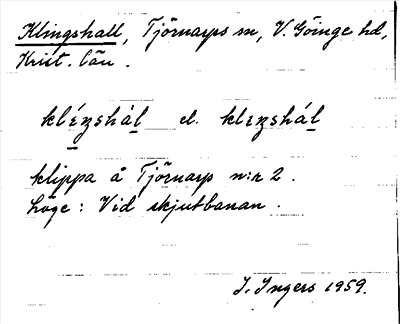 Klingshall, Tjörnarps sn, V. Göinge hd,
Krist. län.
kléŋshàl el. klɪŋshál
klippa å Tjörnarp n:r 2.
Läge: Vid skjutbanan.
I. Ingers 1959.